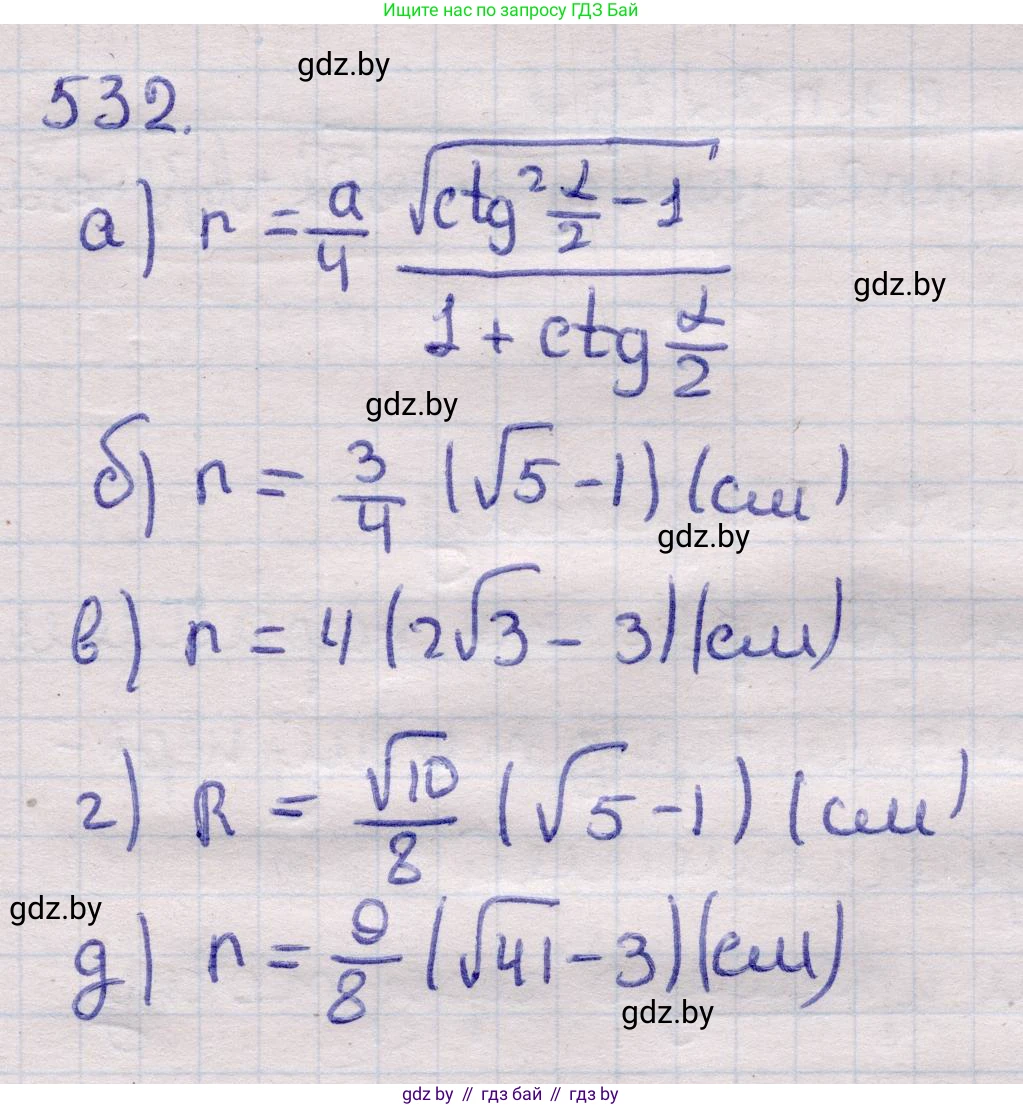 Ищите нас по запросу ГДЗ Бай
gdz.by
532.
а) r = a/4 · √(ctg² α/2 − 1) / (1 + ctg α/2)
gdz.by
gdz.by
б) r = 3/4 (√5 − 1) (см)
gdz.by
в) r = 4 (2√3 − 3) (см)
г) R = √10/8 (√5 − 1) (см)
gdz.by
д) r = 9/8 (√41 − 3) (см)
gdz.by
gdz.by // гдз бай // гдз by